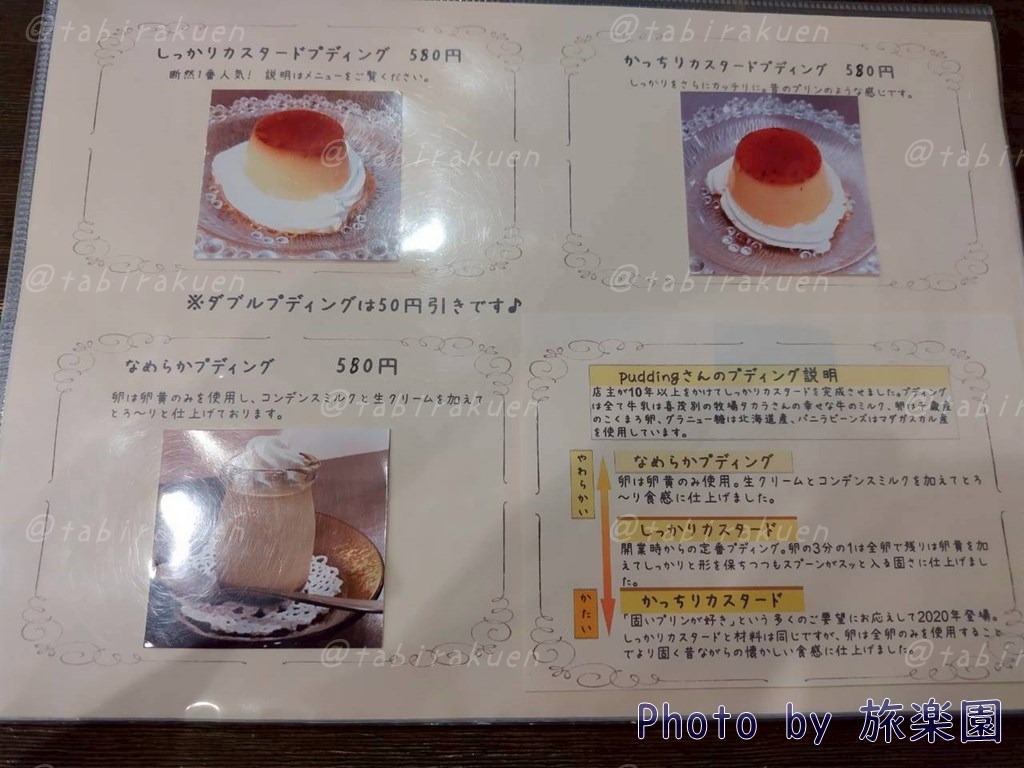 しっかりカスタードプディング 580円
断然1番人気! 説明はメニューをご覧ください。
かっちりカスタードプディング 580円
しっかりをさらにカッチリに。昔のプリンのような感じです。
※ダブルプディングは50円引きです♪
なめらかプディング 580円
卵は卵黄のみを使用し、コンデンスミルクと生クリームを加えて
とろ〜りと仕上げております。
puddingさんのプディング説明
店主が10年以上をかけてしっかりカスタードを完成させました。プディング
は全て牛乳は喜茂別の牧場タカラさんの幸せな牛のミルク、卵は千歳産
のこくまろ卵、グラニュー糖は北海道産、バニラビーンズはマダガスカル産
を使用しています。
やわらかい
なめらかプディング
卵は卵黄のみ使用。生クリームとコンデンスミルクを加えてとろ
〜り食感に仕上げました。
しっかりカスタード
開業時からの定番プディング。卵の3分の1は全卵で残りは卵黄を加
えてしっかりと形を保ちつつもスプーンがスッと入る固さに仕上げまし
た。
かたい
かっちりカスタード
「固いプリンが好き」という多くのご要望にお応えして2020年登場。
しっかりカスタードと材料は同じですが、卵は全卵のみを使用すること
でより固く昔ながらの懐かしい食感に仕上げました。
@tabirakuen
@tabirakuen
@tabirakuen
@tabir
@tabirakuen
@tabirakuen
@tabirakuen
@tabirakuen
@tabir
@tabirakuen
@tabirakuen
@tabir
Photo by 旅楽園